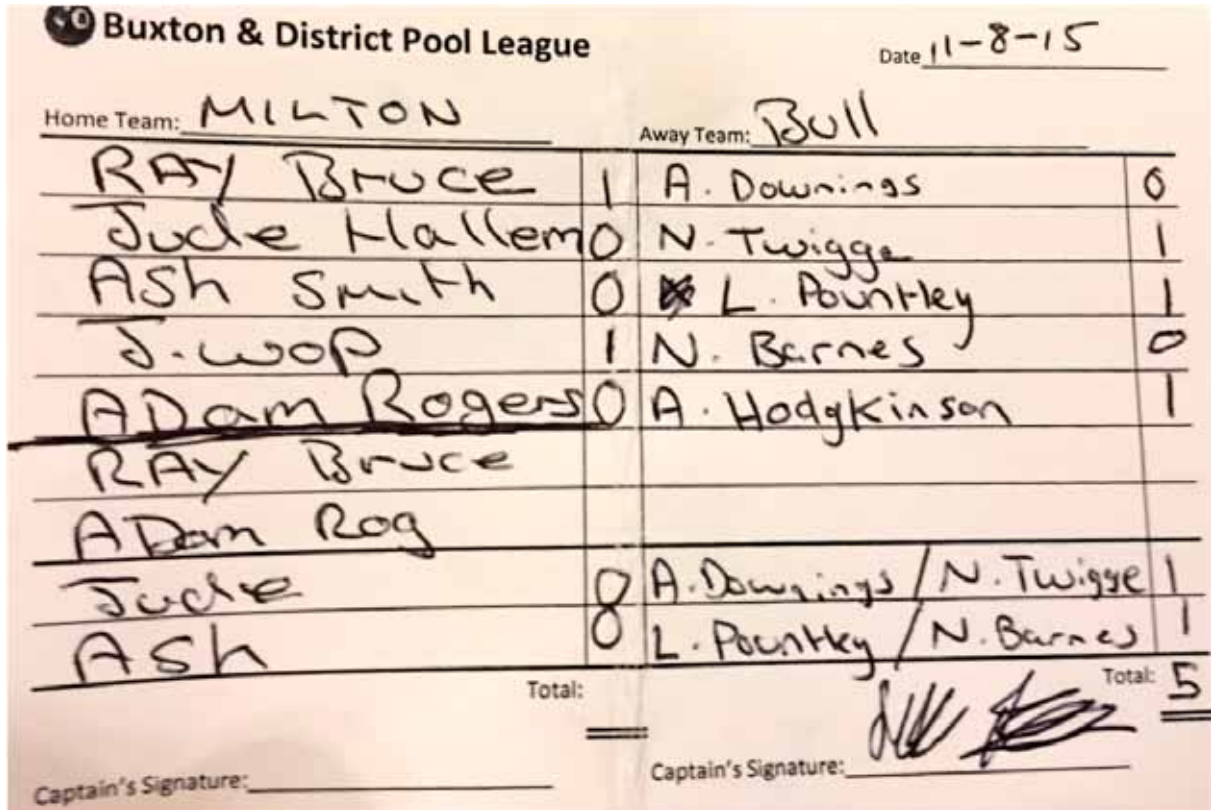 Buxton & District Pool League
Date 11-8-15
Home Team: MILTON Away Team: Bull
RAY Bruce 1 A. Downings 0
Jude Hallem 0 N. Twigge 1
ASh Smith 0 L. Pountley 1
J. WOP 1 N. Barnes 0
ADam Rogers 0 A. Hodgkinson 1
RAY Bruce
ADam Rog
Jude 0 A. Downings / N. Twigge 1
ASh 0 L. Pountley / N. Barnes 1
Total: Total: 5
Captain's Signature: Captain's Signature: